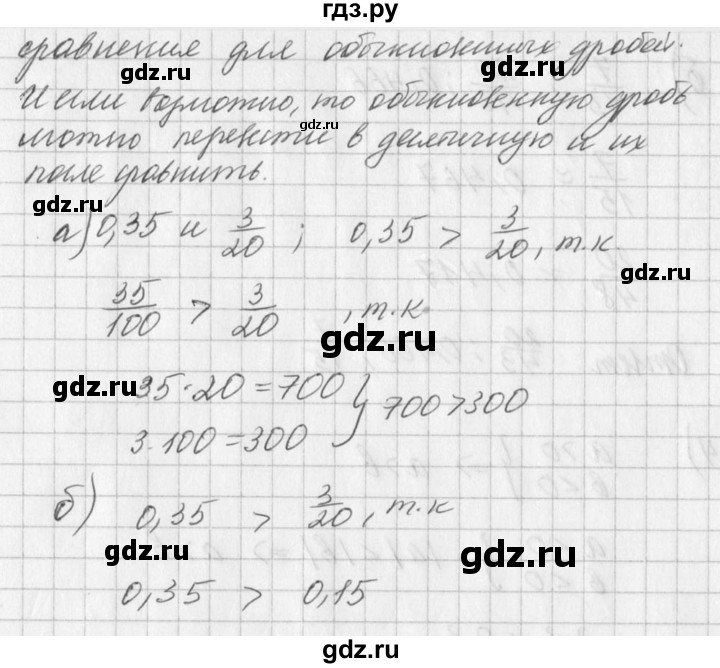 гдз.ру
сравнения для обыкновенных дробей.
И если возможно, то обыкновенную дробь
можно перевести в десятичную и их
после сравнить.
а) 0,35 и 3/20 ; 0,35 > 3/20, т.к.
35/100 > 3/20 , т.к
35·20=700
3·100=300 } 700>300
б) 0,35 > 3/20, т.к
0,35 > 0,15
gdz.ru
gdz.ru
gdz.ru
gdz.ru
gdz.ru
gdz.ru
gdz.ru
gdz.ru
gdz.ru
gdz.ru
gdz.ru